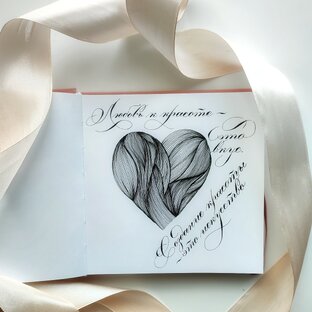 Любовь к красоте -
это
вкус.
Создание красоты
- это искусство.